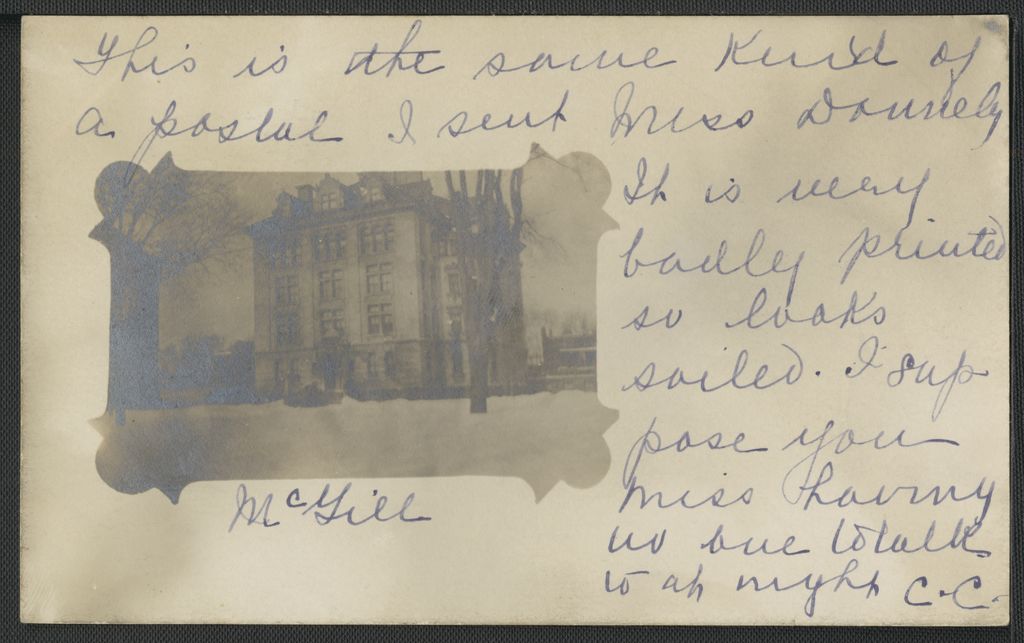 This is the same kind of
a postal I sent Miss Donnely
It is very
badly printed
so looks
soiled. I sup
pose you
miss having
no one to talk
to at night C.C.
McGill